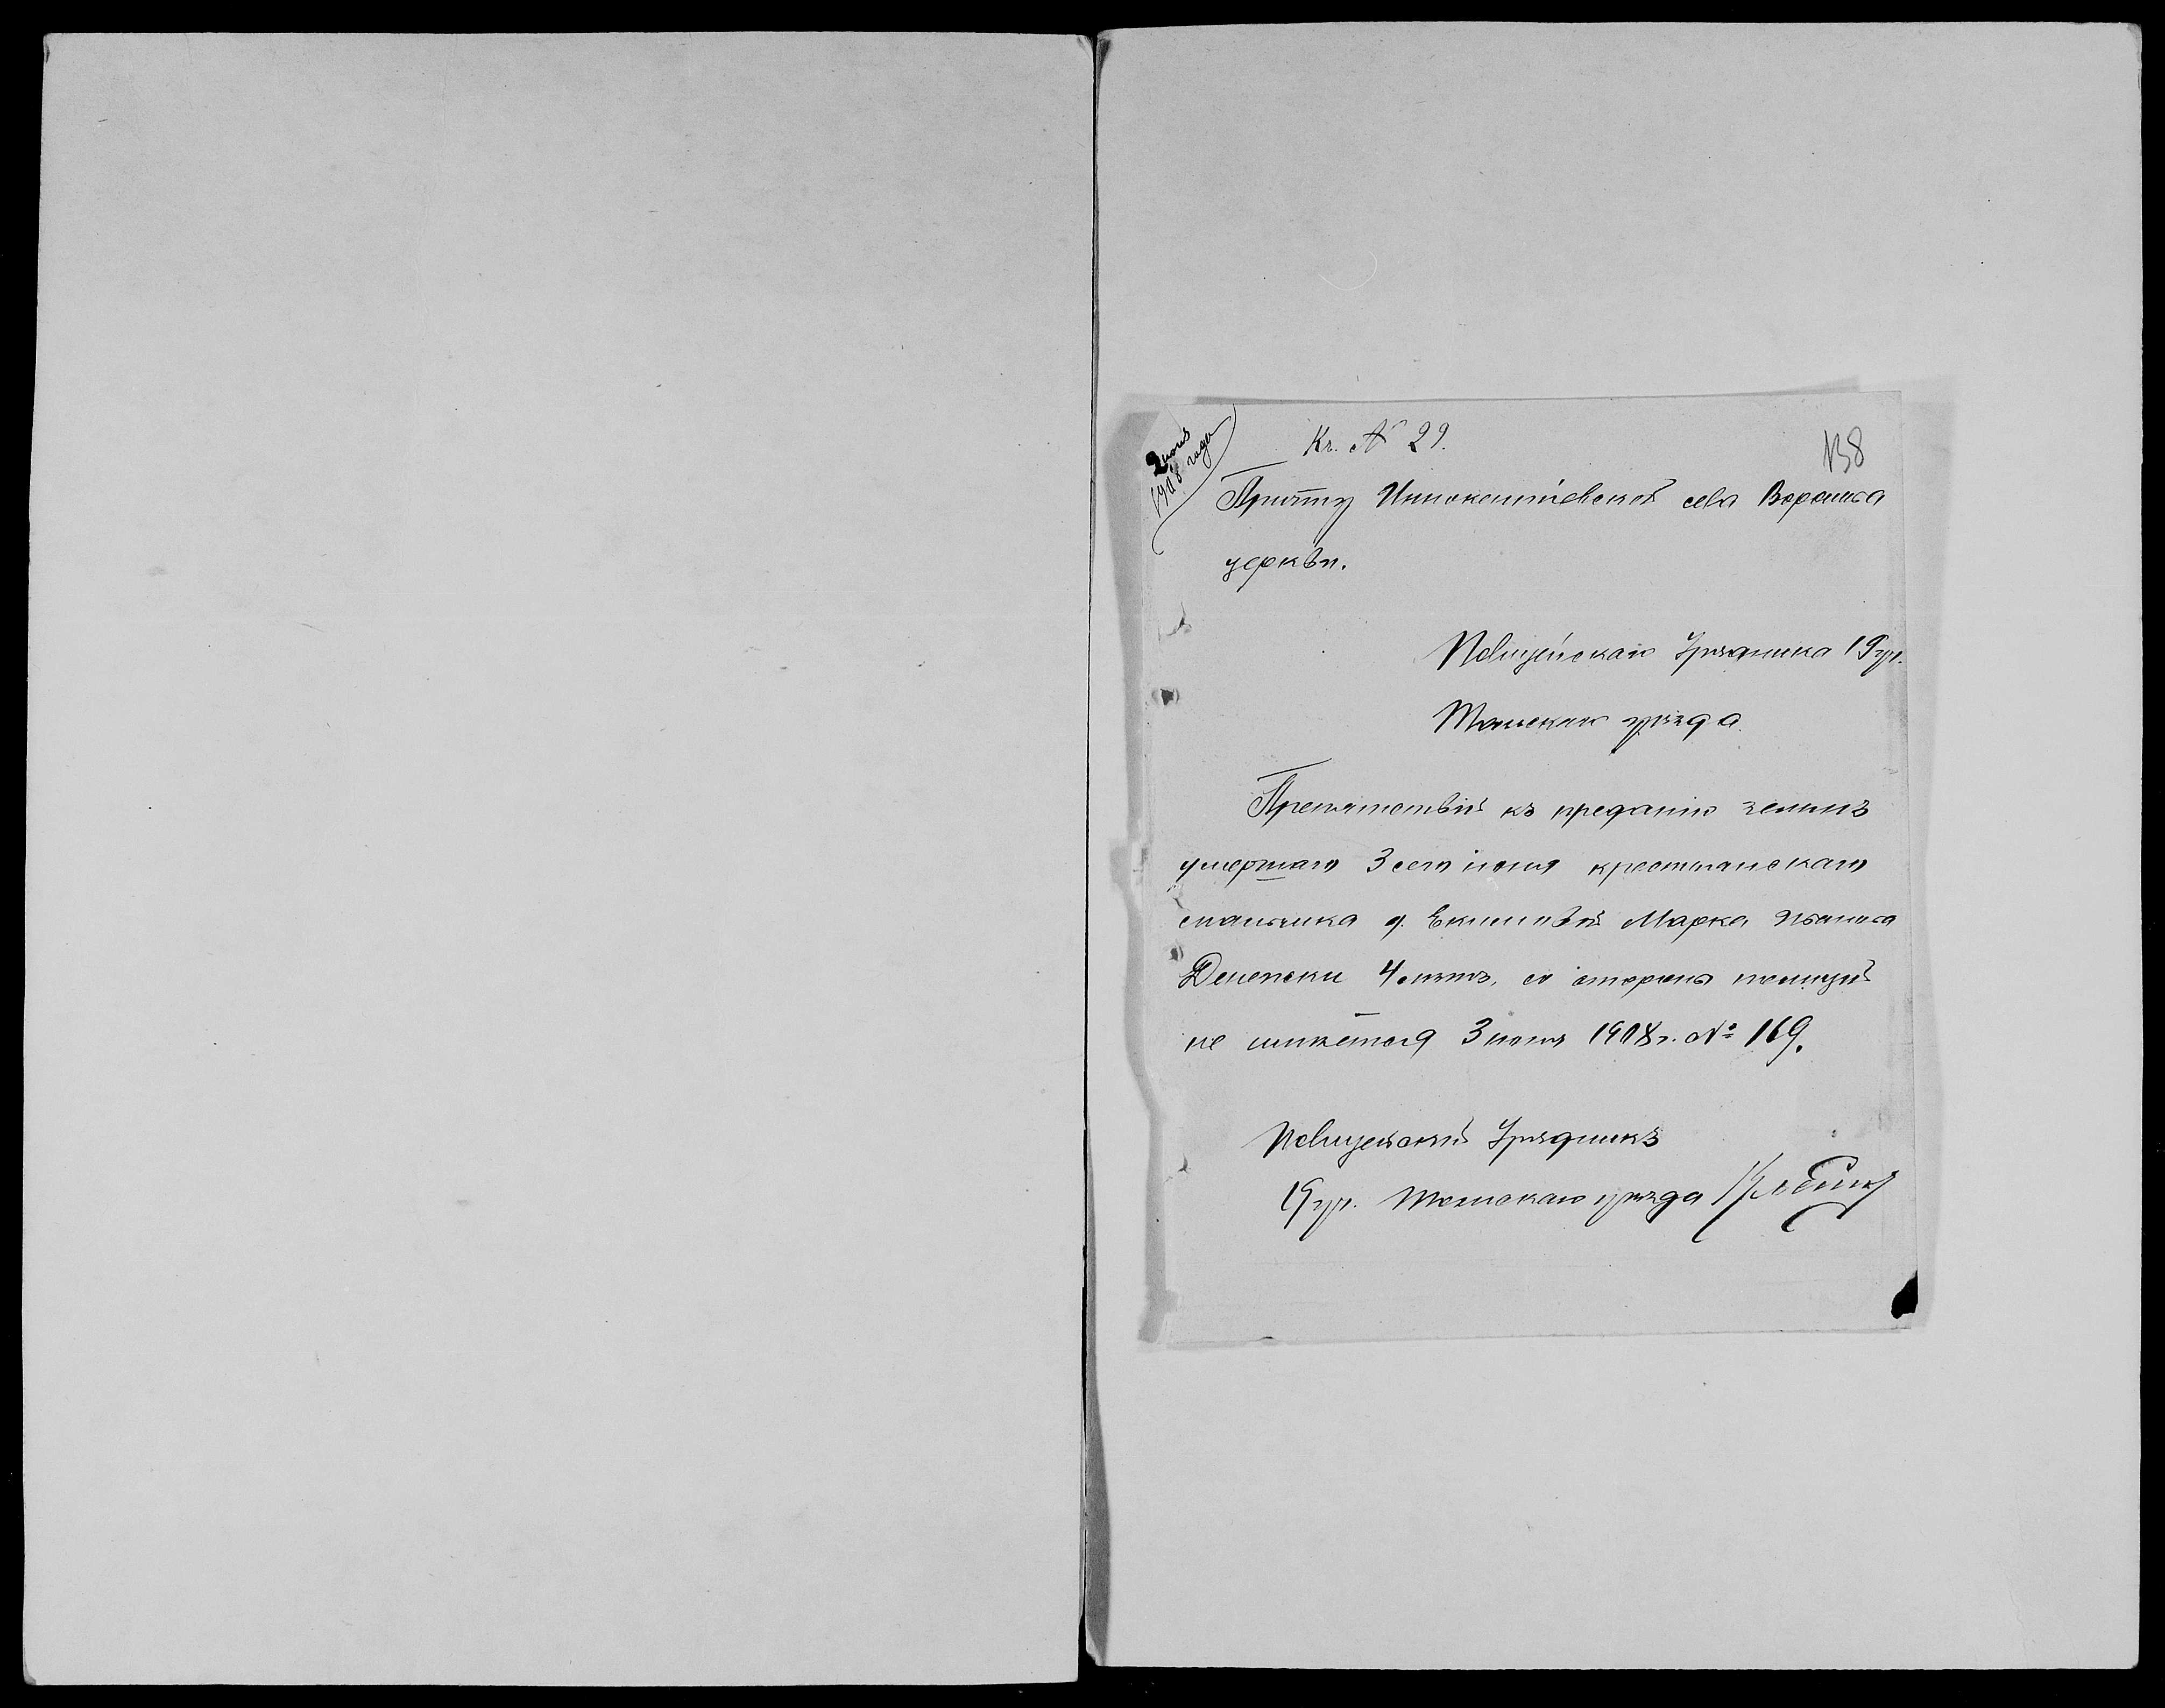 2 июня
1908 года
Къ № 29.
138
Причту Иннокентіевской села Воронина
церкви.
Полицейскаго Урядника 19 уч.
Томскаго уѣзда.
Препятствій къ преданію землѣ
умершаго 3 сего іюня крестьянскаго
мальчика д. Марка Иванова
4 лѣтъ, со стороны полиціи
не имѣется 3 іюня 1908 г. № 169.
Полицейскій Урядникъ
19 уч. Томскаго уѣзда